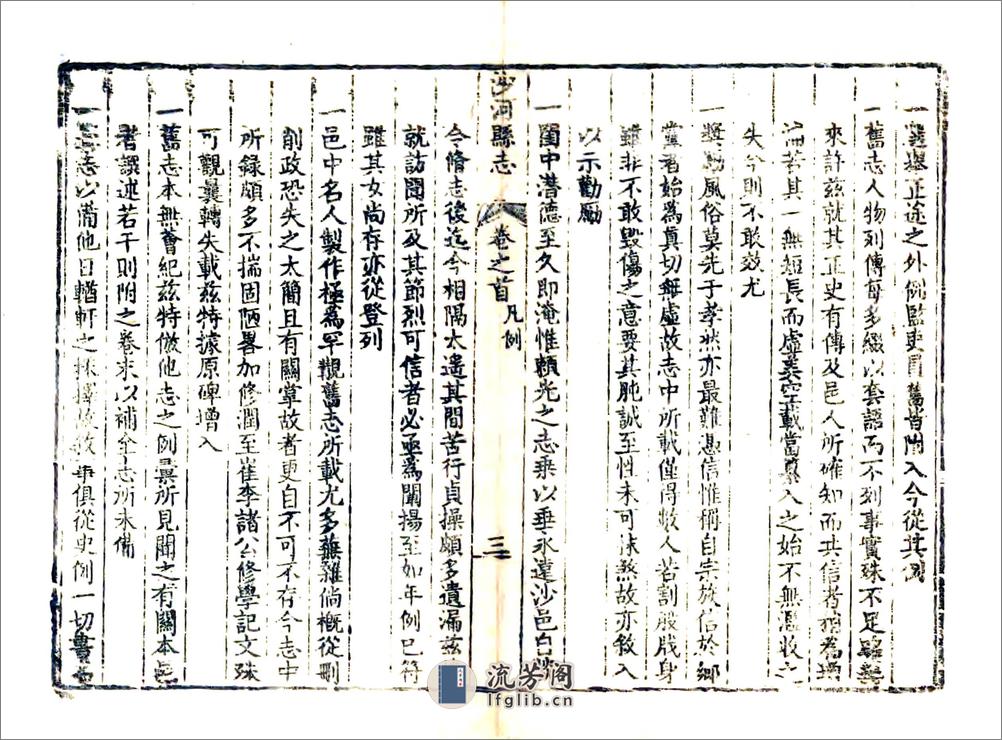 一選舉正途之外例監吏員舊皆附入今從其例
一舊志人物列傳每多綴以套語而不列事實殊不足
來許茲就其正史有傳及邑人所確知而共信者稍為增
若其一無短長而虛美空載當纂入之始不無濫收之
失今則不敢效尤
一獎勸風俗莫先于孝然亦最難憑信惟稱自宗族信於鄉
黨者始為真切無虛故志中所載僅得數人若割股戕身
雖非不敢毀傷之意要其肫誠至性未可抹煞故亦敘入
以示勸勵
一閨中潛德至久即淹惟賴光之志乘以垂永遠沙邑自
令脩志後迄今相隔太遙其間苦行貞操頗多遺漏茲
就訪聞所及其節烈可信者必亟為闡揚至如年例已符
雖其女尚存亦從登列
一邑中名人製作極為罕覯舊志所載尤多蕪雜倘概從刪
削政恐失之太簡且有關掌故者更自不可不存今志中
所錄頗多不揣固陋畧加修潤至崔李諸公修學記文殊
可觀曩轉失載茲特據原碑增入
一舊志本無薈紀茲特倣他志之例彙所見聞之有關本邑
者誤述若干則附之卷末以補全志所未備
一志以備他日輶軒之採擇故敘事俱從史例一切書名
沙河縣志
卷之首
凡例
三
流芳阁
lfglib.cn